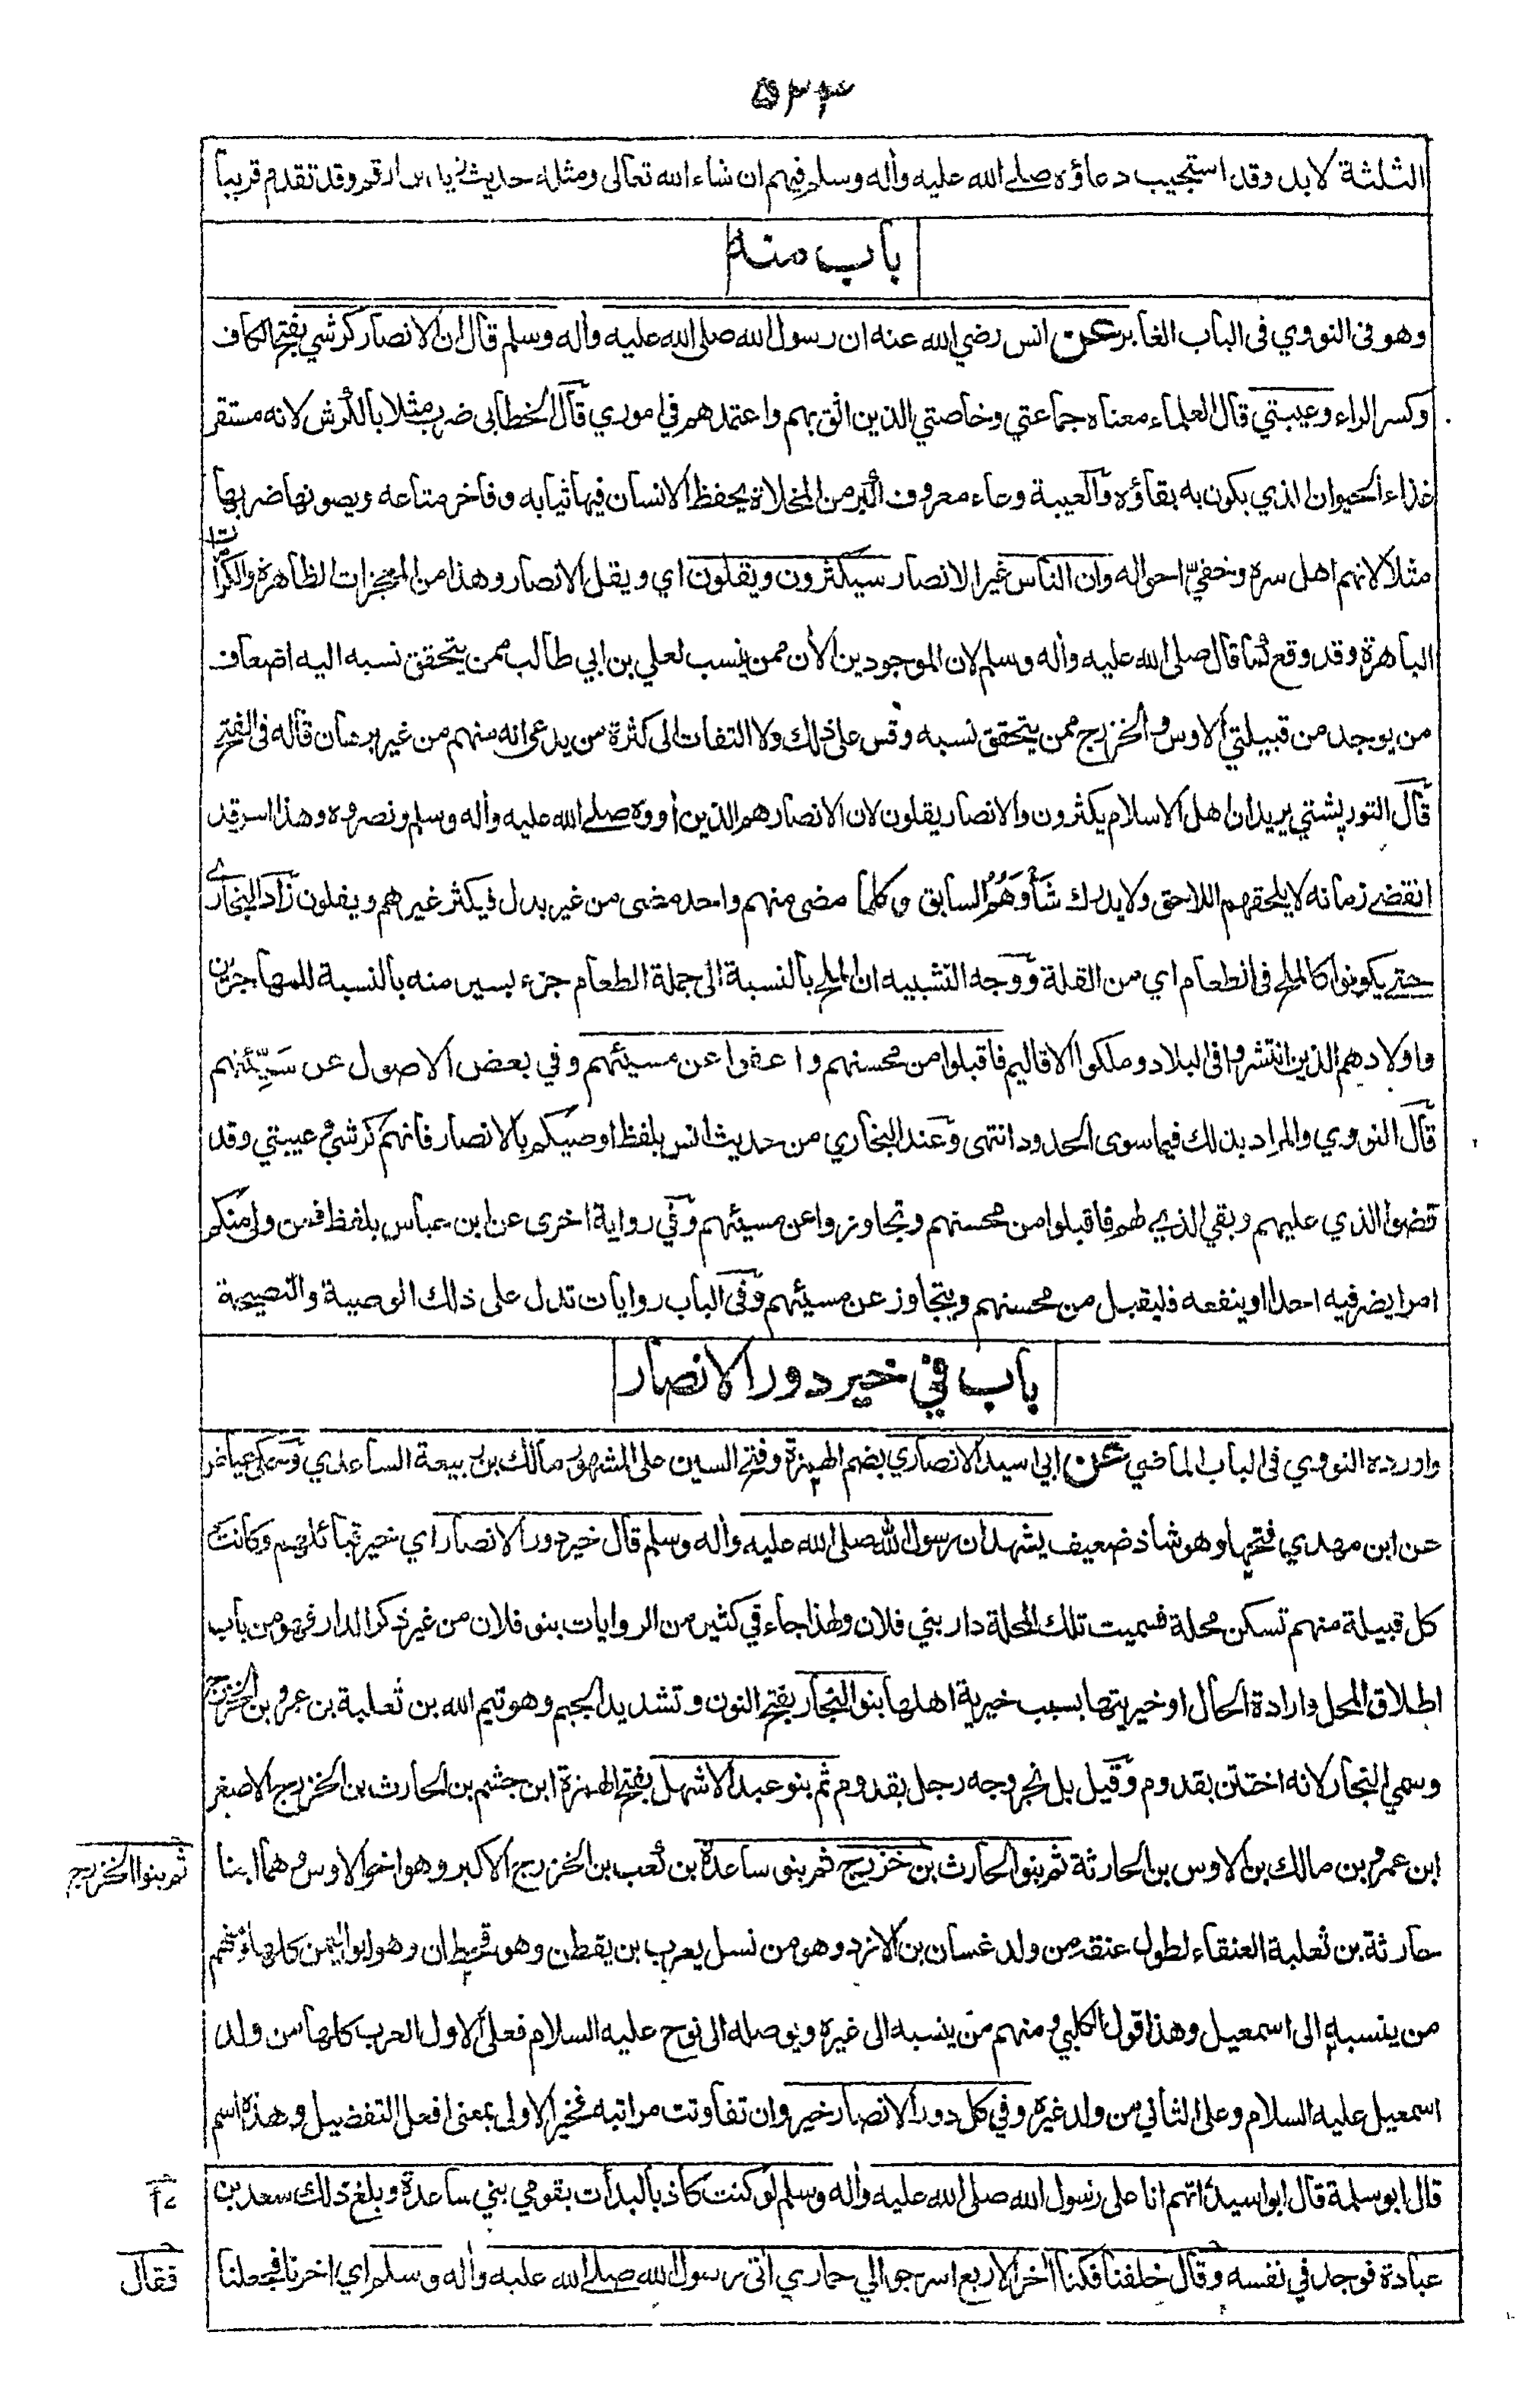 ٥٣٣
الثلثة لابد وقد استجيب دعاؤه صلى الله عليه وأله وسلم فيهم ان شاء الله تعالى ومثله حديث زيد بن ارقم وقد تقدم قريبا
باب منه
وهو فى النووي فى الباب الغابر عن انس رضي الله عنه ان رسول الله صلى الله عليه وأله وسلم قال ان الانصار كرشي بفتح الكاف
وكسر الراء وعيبتي قال العلماء معناه جماعتي وخاصتي الذين اثق بهم واعتمدهم في اموري قال الخطابى ضرب مثلا بالكرش لانه مستقر
غذاء الحيوان الذي يكون به بقاؤه والعيبة وعاء معروف اكبر من المخلاة يحفظ الانسان فيها ثيابه وفاخر متاعه ويصونها ضربها
مثلا لانهم اهل سره وخفيّ احواله وان الناس غير الانصار سيكثرون ويقلون اي ويقل الانصار وهذا من المعجزات الظاهرة والكرامات
الباهرة وقد وقع كما قال صلى الله عليه وأله وسلم لان الموجودين الأن ممن ينسب لعلي بن ابي طالب ممن يتحقق نسبه اليه اضعاف
من يوجد من قبيلتي الاوس والخزرج ممن يتحقق نسبه وقس على ذلك ولا التفات الى كثرة من يدعى انه منهم من غير برهان قاله فى الفتح
قال التورپشتي يريد ان اهل الاسلام يكثرون والانصار يقلون لان الانصار هم الذين أووه صلى الله عليه وأله وسلم ونصروه وهذا امر قد
انقضے زمانه لا يلحقهم اللاحق ولا يدرك شَأْوَهُمُ السابق وكلما مضى منهم واحد مضى من غير بدل فيكثر غيرهم ويقلون زاد البخارے
حتے يكونوا كالملح فى الطعام اي من القلة ووجه التشبيه ان الملح بالنسبة الى جملة الطعام جزء يسير منه بالنسبة للمهاجرين
واولادهم الذين انتشروا فى البلاد وملكوا الاقاليم فاقبلوا من محسنهم واعفوا عن مسيئهم وفي بعض الاصول عن سَيِّئَتِهم
قال النووي والمراد بذلك فيما سوى الحدود انتهى وعند البخاري من حديث انس بلفظ اوصيكم بالانصار فانهم كرشي وعيبتي وقد
قضوا الذي عليهم وبقي الذے لهم فاقبلوا من محسنهم وتجاوزوا عن مسيئهم وفي رواية اخرى عن ابن عباس بلفظ فمن ولي منكم
امرا يضر فيه احدا او ينفعه فليقبل من محسنهم ويتجاوز عن مسيئهم وفى الباب روايات تدل على ذلك الوصية والنصيحة
باب في خير دور الانصار
واورده النووي فى الباب الماضي عن ابي اسيد الانصاري بضم الهمزة وفتح السين على المشهور مالك بن ربيعة الساعدي وحكى عياض
عن ابن مهدي فتحها وهو شاذ ضعيف يشهد ان رسول الله صلى الله عليه وأله وسلم قال خير دور الانصار اي خير قبائلهم وكانت
كل قبيلة منهم تسكن محلة فسميت تلك المحلة دار بني فلان ولهذا جاء في كثير من الروايات بنو فلان من غير ذكر الدار فهو من باب
اطلاق المحل وارادة الحال او خيريتها بسبب خيرية اهلها بنو النجار بفتح النون وتشديد الجيم وهو تيم الله بن ثعلبة بن عمرو بن الخزرج
وسمي النجار لانه اختتن بقدوم وقيل بل نجر وجه رجل بقدوم ثم بنو عبد الاشهل بفتح الهمزة ابن جشم بن الحارث بن الخزرج الاصغر
ابن عمرو بن مالك بن الاوس بن الحارثة ثم بنو الحارث بن خزرج ثم بنو ساعدة بن كعب بن الخزرج الاكبر وهو اخو الاوس وهما ابنا
ثم بنوا الخزرج
حارثة بن ثعلبة العنقاء لطول عنقه من ولد غسان بن الازد وهو من نسل يعرب بن يقطن وهو قحطان وهو ابو اليمن كلها ومنهم
من ينسبه الى اسمعيل وهذا قول الكلبي ومنهم من ينسبه الى غيره ويوصله الى نوح عليه السلام فعلى الاول العرب كلها من ولد
اسمعيل عليه السلام وعلى الثاني من ولد غيره وفي كل دور الانصار خير وان تفاوتت مراتبه فخير الاولى بمعنى افعل التفضيل وهذه اسم
قال ابو سلمة قال ابو اسيد اتهم انا على رسول الله صلى الله عليه وأله وسلم لو كنت كاذبا لبدأت بقومي بني ساعدة وبلغ ذلك سعد بن
عبادة فوجد في نفسه وقال خلفنا فكنا أخر الاربع اسرجوا لي حماري أتى رسول الله صلى الله عليه وأله وسلم اي اخرنا فجعلنا
فقال